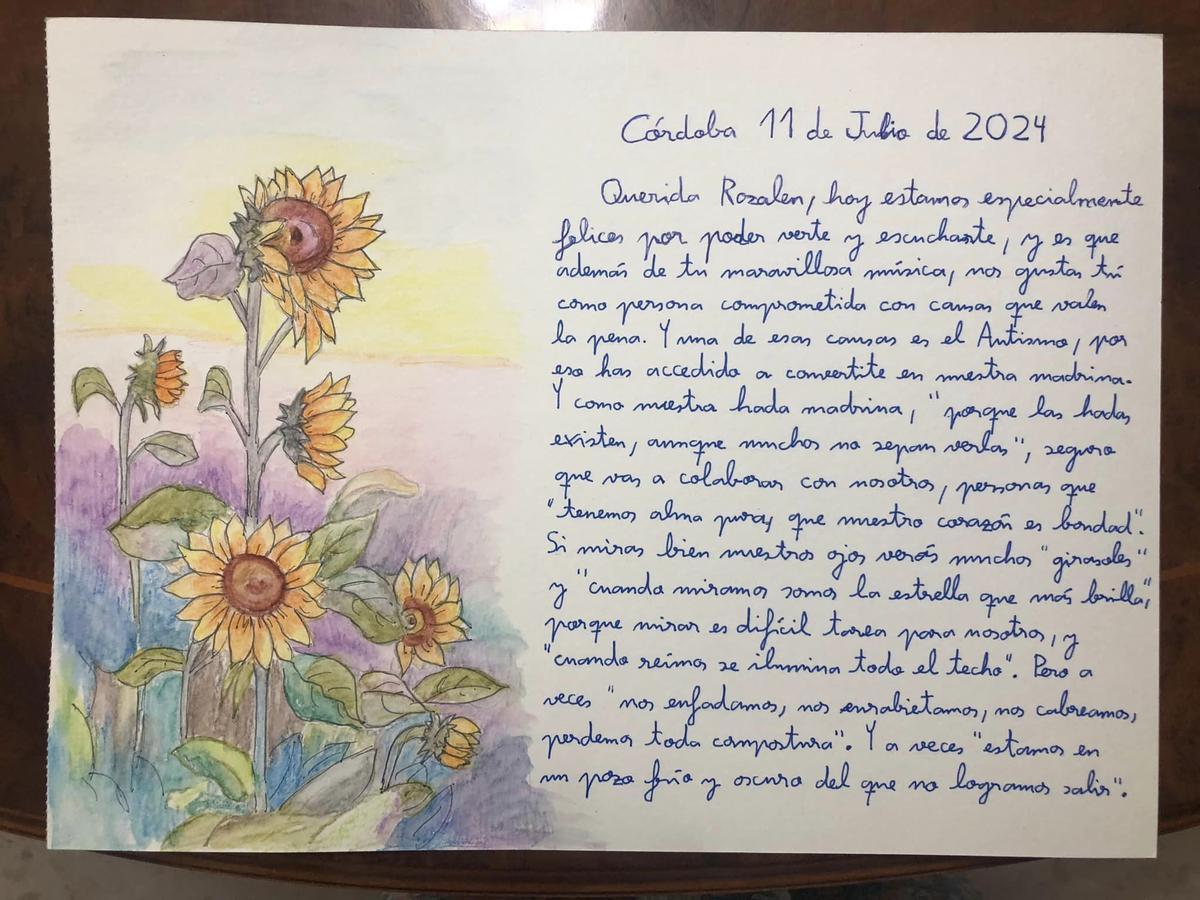 Córdoba 11 de Julio de 2024
Querida Rozalen, hoy estamos especialmente
felices por poder verte y escucharte, y es que
además de tu maravillosa música, nos gustas tú
como persona comprometida con causas que valen
la pena. Y una de esas causas es el Autismo, por
eso has accedido a convertite en nuestra madrina.
Y como nuestra hada madrina, "porque las hadas
existen, aunque muchos no sepan verlas", seguro
que vas a colaborar con nosotros, personas que
"tenemos alma pura, que nuestro corazón es bondad".
Si miras bien nuestros ojos verás muchos "girasoles"
y "cuando miramos somos la estrella que más brilla",
porque mirar es difícil tarea para nosotros, y
"cuando reímos se ilumina todo el techo". Pero a
veces "nos enfadamos, nos enrabietamos, nos cabreamos,
perdemos toda compostura". Y a veces "estamos en
un pozo frío y oscuro del que no logramos salir".